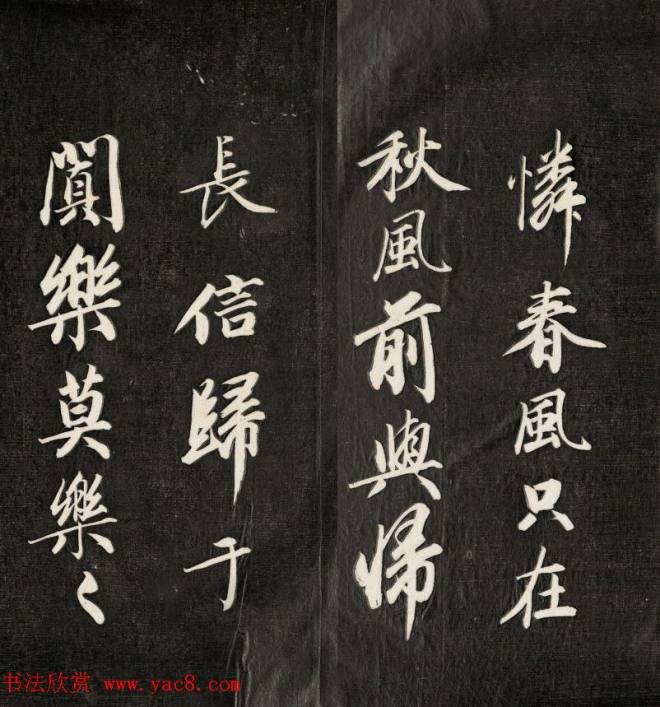 憐春風只在
秋風前與歸
長信歸于
闐樂莫樂〻
书法欣赏 www.yac8.com